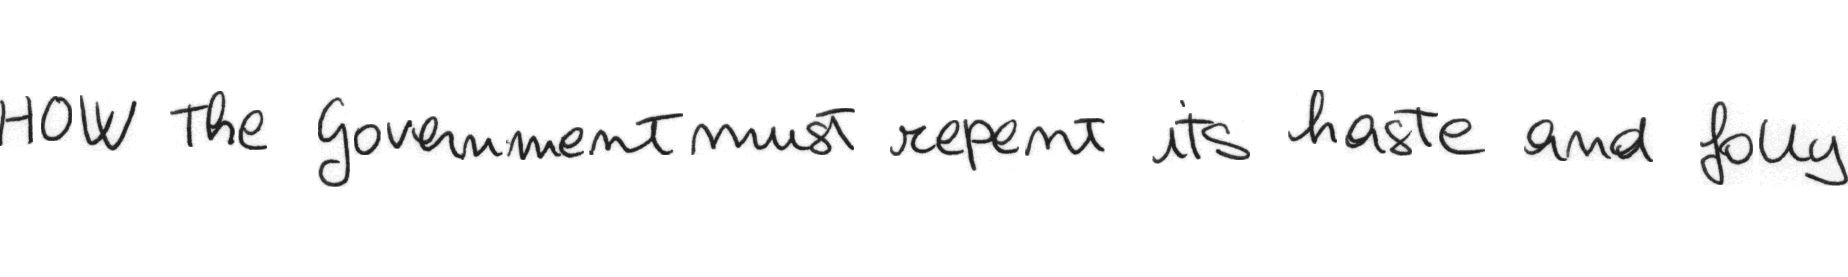 HOW the Government must repent its haste and folly